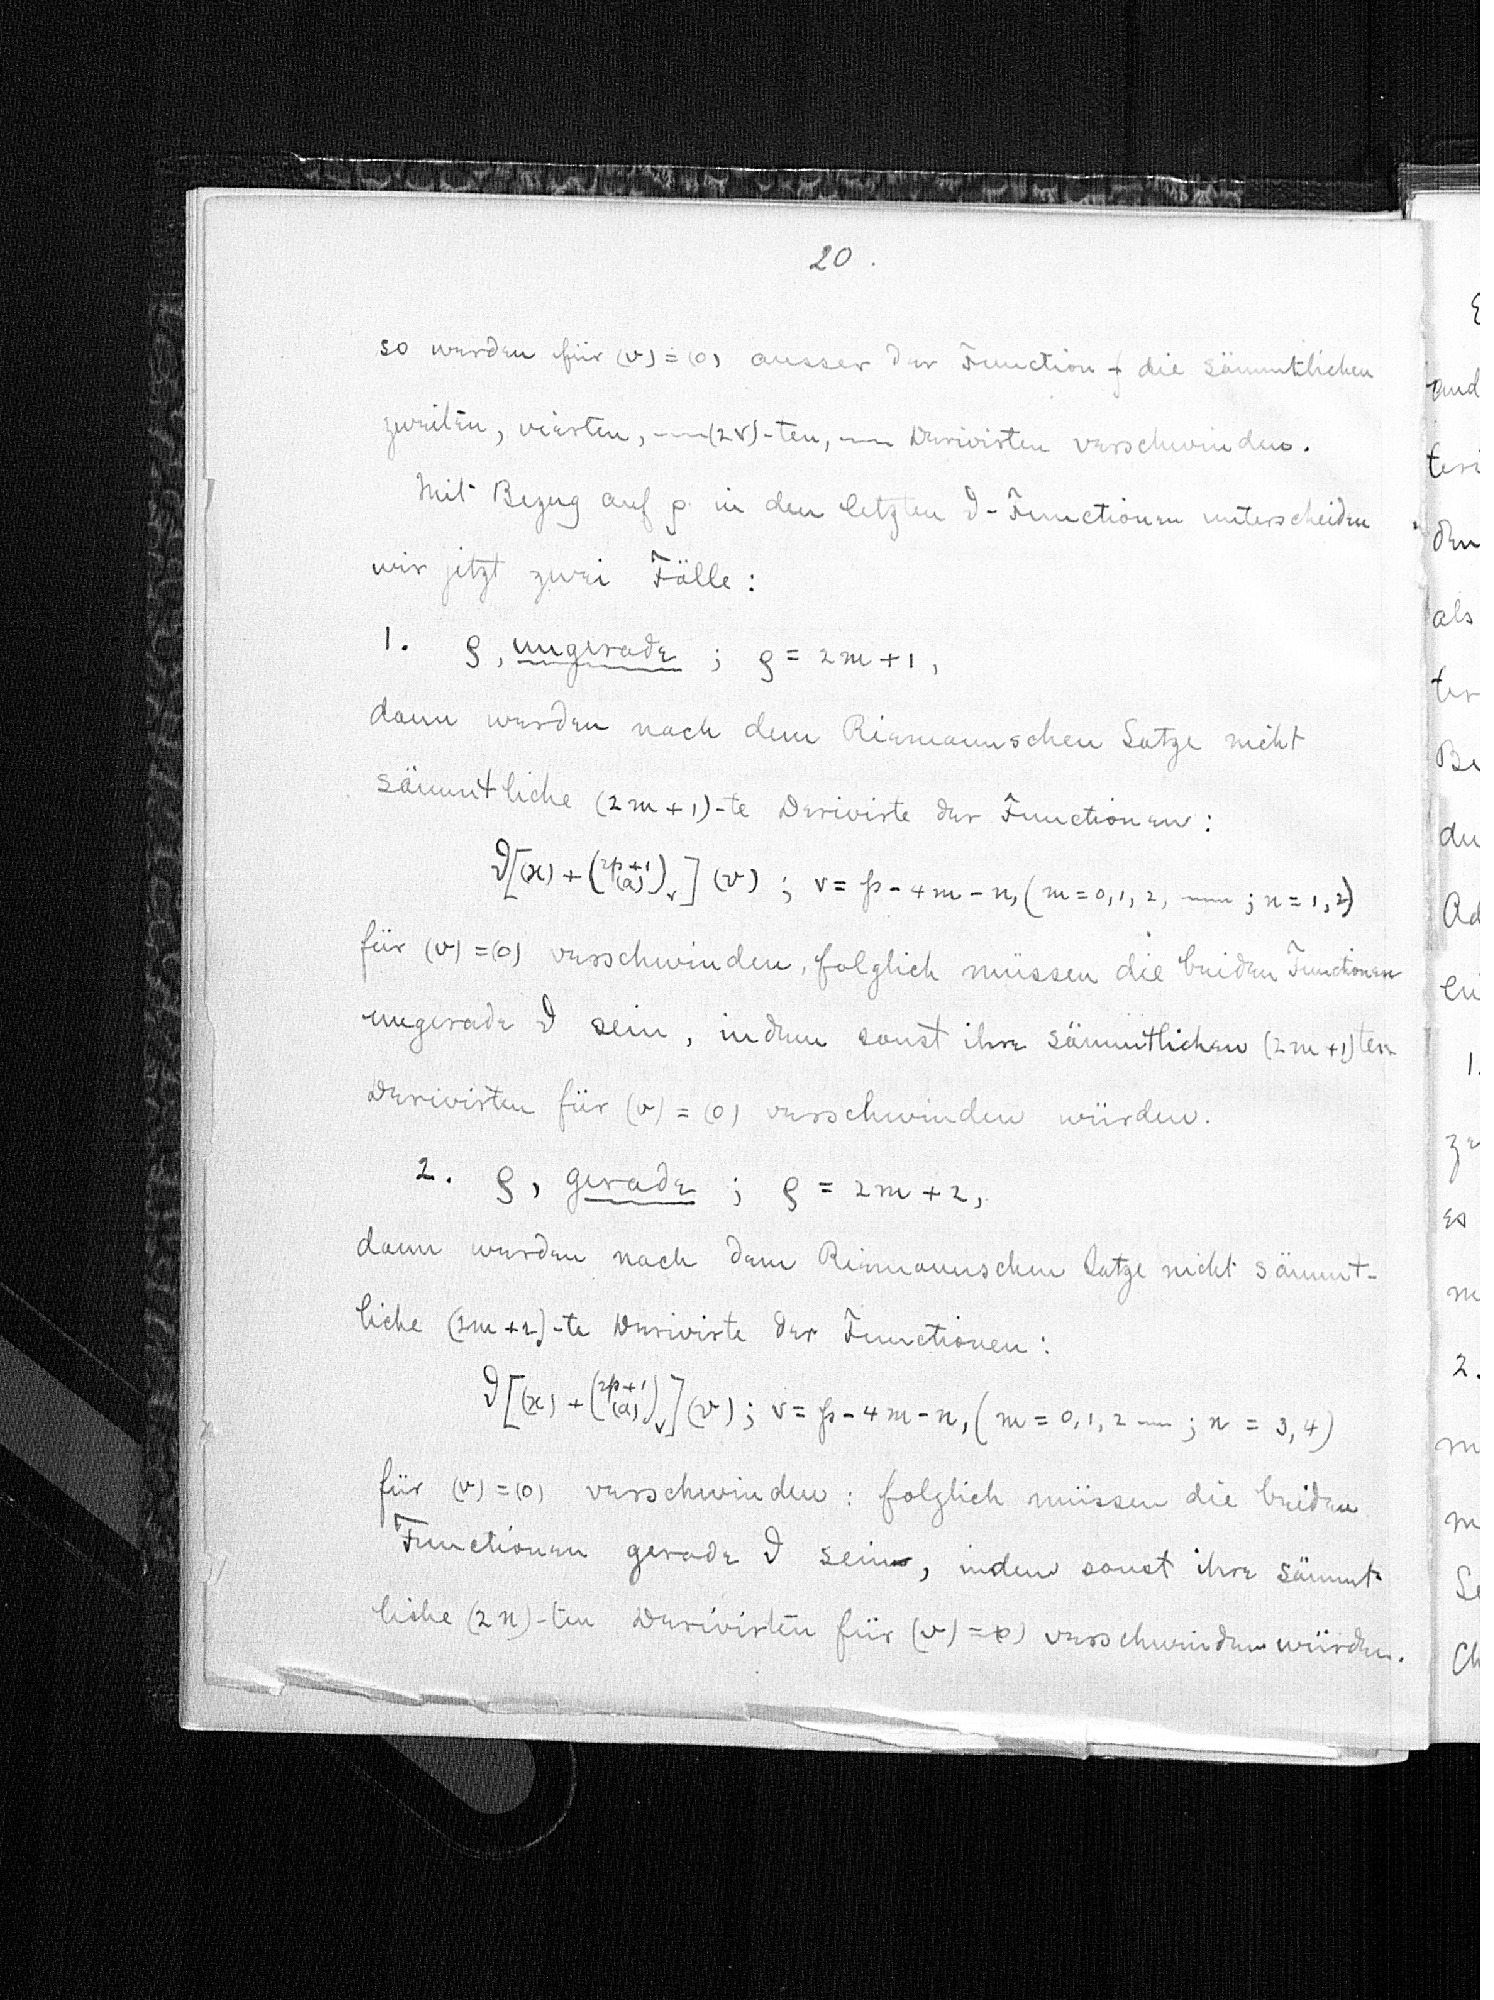 20.
so werden für (v) = (0) ausser der Function f die sämmtlichen
zweiten, vierten, ——(2ν)-ten, —— Derivirten verschwinden.
Mit Bezug auf ρ in den letzten ϑ-Functionen unterscheiden
wir jetzt zwei Fälle:
1. ρ, ungerade; ρ = 2m+1,
dann werden nach dem Riemannschen Satze nicht
sämmtliche (2m+1)-te Derivirte der Functionen:
ϑ[(x) + (2p+1 (a))ν](v); ν = p-4m-n, (m=0,1,2, ——; n=1,2)
für (v) = (0) verschwinden, folglich müssen die beiden Functionen
ungerade ϑ sein, indem sonst ihre sämmtlichen (2m+1)ten
Derivirten für (v) = (0) verschwinden würden.
2. ρ, gerade; ρ = 2m+2,
dann werden nach dem Riemannschen Satze nicht sämmt-
liche (2m+2)-te Derivirte der Functionen:
ϑ[(x) + (2p+1 (a))ν](v); ν = p-4m-n, (m=0,1,2 ——; n = 3,4)
für (v) = (0) verschwinden: folglich müssen die beiden
Functionen gerade ϑ sein, indem sonst ihre sämmt-
liche (2n)-ten Derivirten für (v) = (0) verschwinden würden.
and
teri
den
als
ter
Be
du
Ad
1.
es
2.